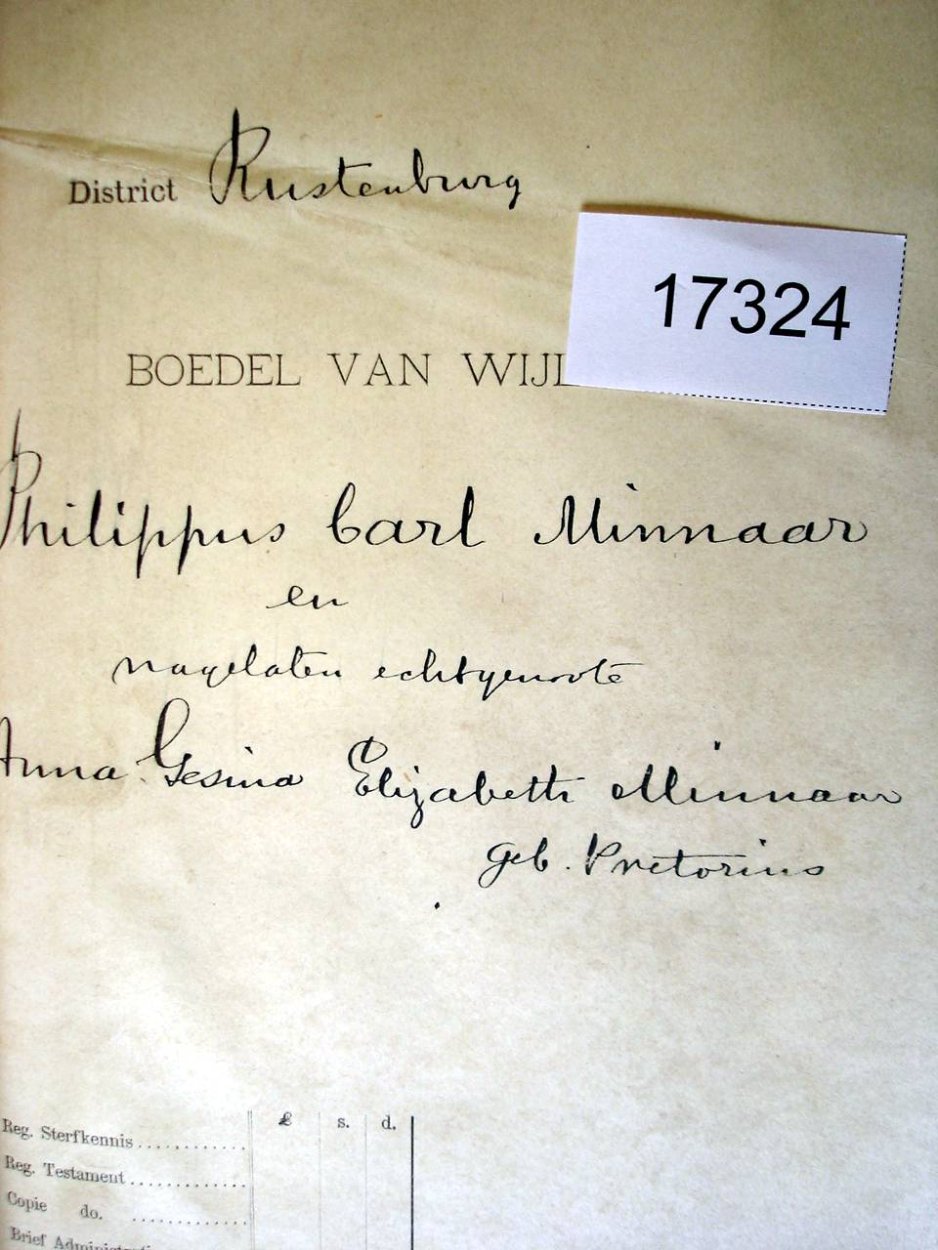 District Rustenburg
17324
BOEDEL VAN WIJL
Philippus Carl Minnaar
en
nagelaten echtgenoote
Anna Gesina Elizabeth Minnaar
geb. Pretorius
£ s. d.
Reg. Sterfkennis
Reg. Testament
Copie do.
Brief